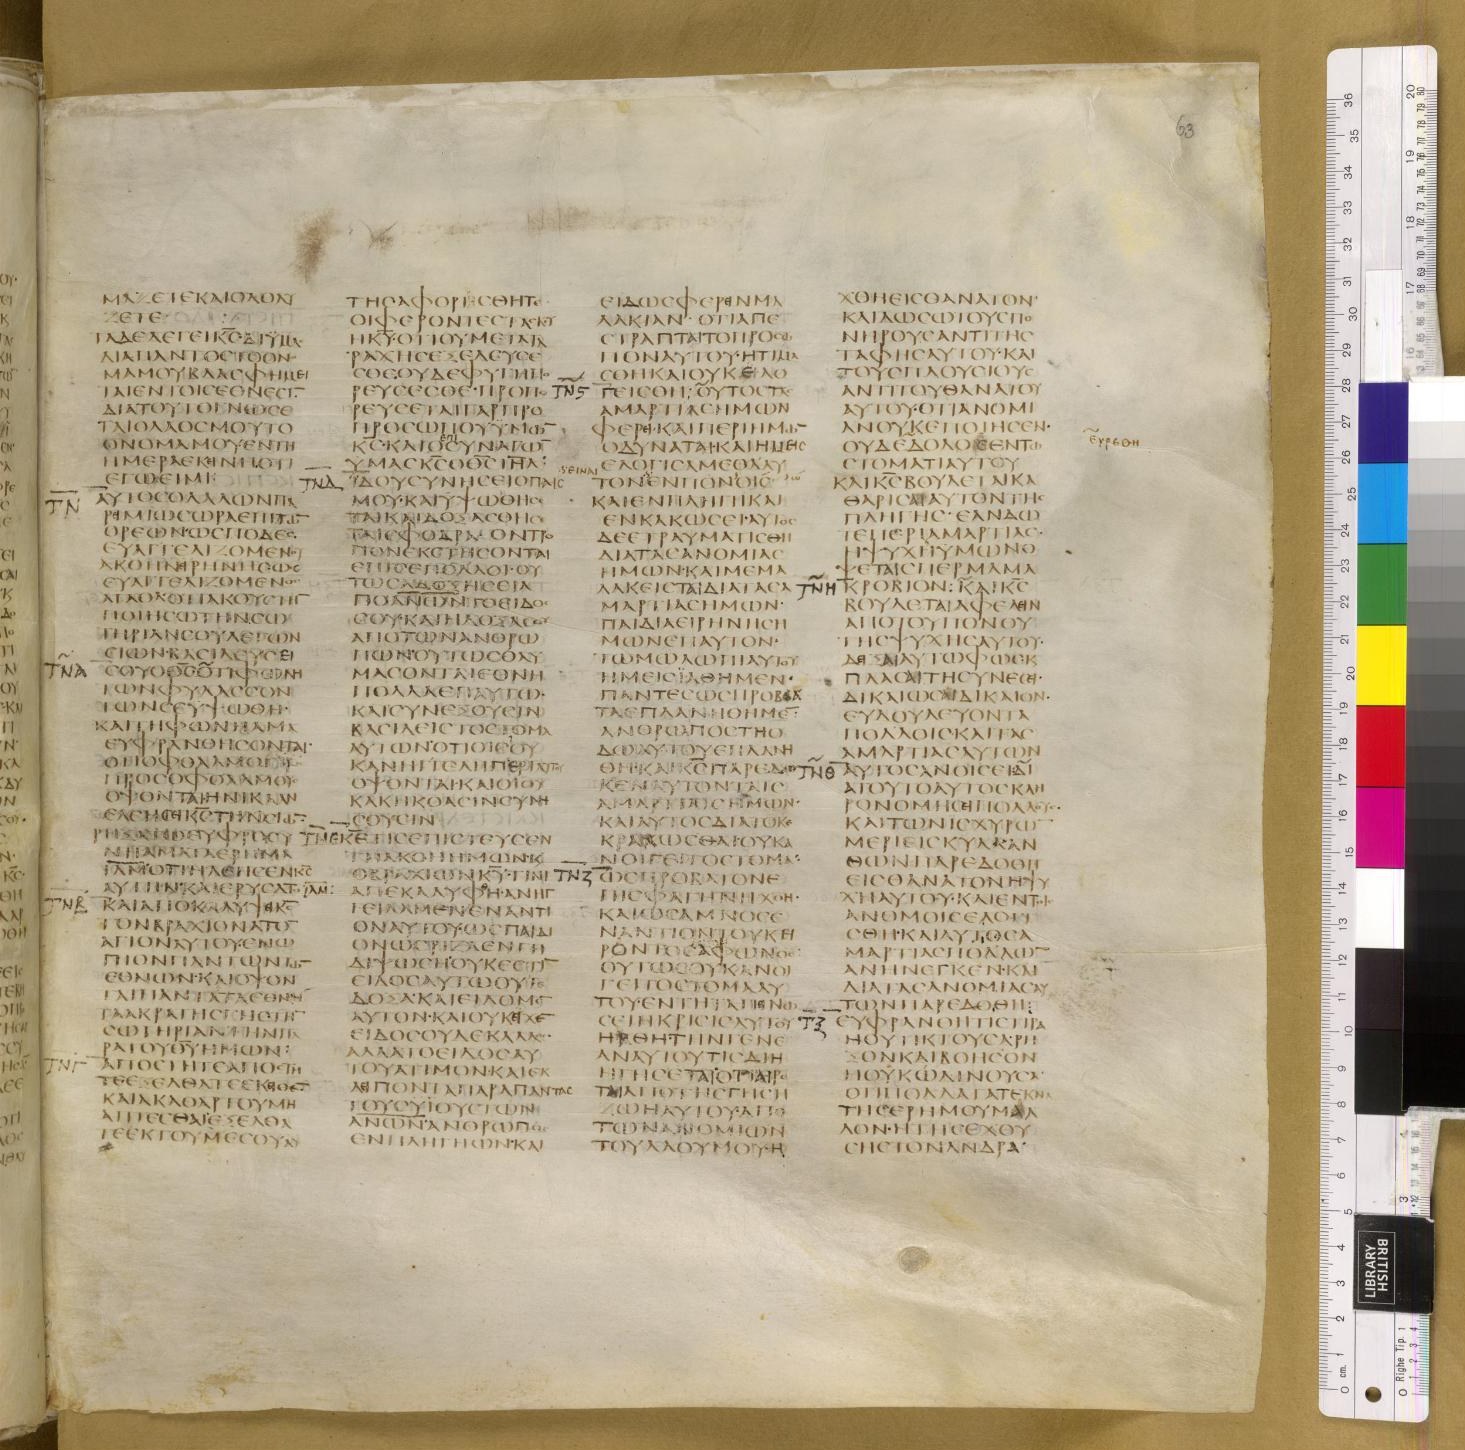 63
ΜΑΖΕΤΕΚΑΙΟΛΟΛΥ
ΖΕΤΕ
ΤΑΔΕΛΕΓΕΙΚ̅Ϲ̅·ΔΙΥΜΑ
ΔΙΑΠΑΝΤΟϹΤΟΟΝΟ
ΜΑΜΟΥΒΛΑϹΦΗΜΕΙ
ΤΑΙΕΝΤΟΙϹΕΘΝΕϹΙ
ΔΙΑΤΟΥΤΟΓΝΩϹΕ
ΤΑΙΟΛΑΟϹΜΟΥΤΟ
ΟΝΟΜΑΜΟΥΕΝΤΗ
ΗΜΕΡΑΕΚΙΝΗΟΤΙ
ΕΓΩΕΙΜΙ
Τ̅Ν̅ ΑΥΤΟϹΟΛΑΛΩΝΠΑ
ΡΙΜΙΩϹΩΡΑΕΠΙΤΩ
ΟΡΕΩΝ·ΩϹΠΟΔΕϹ
ΕΥΑΓΓΕΛΙΖΟΜΕΝΟΥ
ΑΚΟΗΝΙΡΗΝΗϹΩϹ
ΕΥΑΓΓΕΛΙΖΟΜΕΝΟϹ
ΑΓΑΘΑΟΤΙΑΚΟΥϹΤΗ
ΠΟΙΗϹΩΤΗΝϹΩ
ΤΗΡΙΑΝϹΟΥΛΕΓΩΝ
ϹΙΩΝ·ΒΑϹΙΛΕΥϹΕΙ
Τ̅Ν̅Α̅ ϹΟΥΟΘ̅Ϲ̅ΟΤΙΦΩΝΗ
ΤΩΝΦΥΛΑϹϹΟΝ
ΤΩΝϹΕΥΨΩΘΗ·
ΚΑΙΤΗΦΩΝΗΑΜΑ
ΕΥΦΡΑΝΘΗϹΟΝΤΑΙ·
ΟΤΙΟΦΘΑΛΜΟΙ
ΠΡΟϹΟΦΘΑΛΜΟΥϹ
ΟΨΟΝΤΑΙΗΝΙΚΑΑΝ
ΕΛΕΗϹΗΚ̅Ϲ̅ΤΗΝϹΙΩ
ΡΗΞΑΤΩΕΥΦΡΟϹΥ
ΝΗΑΜΑΤΑΕΡΗΜΑ
Ι̅Λ̅Η̅Μ̅ΟΤΙΗΛΕΗϹΕΝΚ̅Ϲ̅
ΑΥΤΗΝ·ΚΑΙΕΡΥϹΑΤΟ
Τ̅Ν̅Β̅ ΚΑΙΑΠΟΚΑΛΥΨΙΚ̅Ϲ̅
ΤΟΝΒΡΑΧΙΟΝΑΤΟ
ΑΓΙΟΝΑΥΤΟΥΕΝΩ
ΠΙΟΝΠΑΝΤΩΝΤΩ
ΕΘΝΩΝ·ΚΑΙΟΨΟΝ
ΤΑΙΠΑΝΤΑΤΑΕΘΝΗ
ΤΑΑΚΡΑΤΗϹΓΗϹΤΗ
ϹΩΤΗΡΙΑΝΤΗΝΠΑ
ΡΑΤΟΥΘ̅Υ̅ΗΜΩΝ:
Τ̅Ν̅Γ̅ ΑΠΟϹΤΗΤΕΑΠΟϹΤΗ
ΤΕΕΞΕΛΘΑΤΕΕΚΙΘΕ
ΚΑΙΑΚΑΘΑΡΤΟΥΜΗ
ΑΠΤΕϹΘΑΙΕΞΕΛΘΑ
ΤΕΕΚΤΟΥΜΕϹΟΥΑΥ
ΤΗϹΑΦΟΡΙϹΘΗΤΕ
ΟΙΦΕΡΟΝΤΕϹΤΑϹΚΕΥ
ΗΚ̅Υ̅·ΟΤΙΟΥΜΕΤΑΤΑ
ΡΑΧΗϹΕΞΕΛΕΥϹΕ
ϹΘΕΟΥΔΕΦΥΓΗΠΟ
ΡΕΥϹΕϹΘΕ·ΠΡΟΠΟ
ΡΕΥϹΕΤΑΙΓΑΡΠΡΟ
ΠΡΟϹΩΠΟΥΫΜΩ
Κ̅Ϲ̅·ΚΑΙΟΕΠΙϹΥΝΑΓΩ
ΥΜΑϹΚ̅Ϲ̅ΟΘ̅Ϲ̅Ι̅Η̅Λ̅·
Τ̅Ν̅Δ̅ ΪΔΟΥϹΥΝΗϹΕΙΟΠΑΙϹ
ΜΟΥ·ΚΑΙΥΨΩΘΗϹΕ
ΤΑΙΚΑΙΔΟΞΑϹΘΗϹΕ
ΤΑΙϹΦΟΔΡΑ·ΟΝΤΡΟ
ΠΟΝΕΚϹΤΗϹΟΝΤΑΙ
ΕΠΙϹΕΠΟΛΛΟΙ·ΟΥ
ΤΩϹΑΔΟΞΗϹΕΙΑ
ΠΟΑΝ̅Ω̅Ν̅ΤΟΕΙΔΟϹ
ϹΟΥ·ΚΑΙΗΔΟΞΑϹΟΥ
ΑΠΟΤΩΝΑΝΘΡΩ
ΠΩΝ·ΟΥΤΩϹΘΑΥ
ΜΑϹΟΝΤΑΙΕΘΝΗ
ΠΟΛΛΑΕΠΑΥΤΩ·
ΚΑΙϹΥΝΕΞΟΥϹΙΝ
ΒΑϹΙΛΕΙϹΤΟϹΤΟΜΑ
ΑΥΤΩΝΟΤΙΟΙϹΟΥ
ΚΑΝΗΓΓΕΛΗΠΕΡΙΑΥΤΟΥ
ΟΨΟΝΤΑΙ·ΚΑΙΟΙΟΥ
ΚΑΚΗΚΟΑϹΙΝϹΥΝΗ
ϹΟΥϹΙΝ
Τ̅Ν̅Ε̅ Κ̅Ε̅ΤΙϹΕΠΙϹΤΕΥϹΕΝ
ΤΗΑΚΟΗΗΜΩΝ·Κ
ΟΒΡΑΧΙΩΝΚ̅Υ̅·ΤΙΝΙ
ΑΠΕΚΑΛΥΦΘΗ·ΑΝΗΓ
ΓΕΙΛΑΜΕΝΕΝΑΝΤΙ
ΟΝΑΥΤΟΥ·ΩϹΠΑΙΔΙ
ΟΝΩϹΡΙΖΑΕΝΓΗ
ΔΙΨΩϹΗ·ΟΥΚΕϹΤΙ
ΕΙΔΟϹΑΥΤΩΟΥΔΕ
ΔΟΞΑ·ΚΑΙΕΙΔΟΜΕ
ΑΥΤΟΝ·ΚΑΙΟΥΚΙΧΕ
ΕΙΔΟϹΟΥΔΕΚΑΛΛΟϹ·
ΑΛΛΑΤΟΕΙΔΟϹΑΥ
ΤΟΥΑΤΙΜΟΝ·ΚΑΙΕΚ
ΛΙΠΟΝΤΑΠΑΡΑΠΑΝΤΑϹ
ΤΟΥϹΥΙΟΥϹΤΩΝ
ΑΝ̅Ω̅Ν̅·ΑΝΘΡΩΠΟϹ
ΕΝΠΛΗΓΗΩΝ·ΚΑΙ
ΕΙΔΩϹΦΕΡΙΝΜΑ
ΛΑΚΙΑΝ·ΟΤΙΑΠΕ
ϹΤΡΑΠΤΑΙΤΟΠΡΟϹΩ
ΠΟΝΑΥΤΟΥ·ΗΤΙΜΑ
ϹΘΗΚΑΙΟΥΚΕΛΟ
Τ̅Ν̅Ϛ̅ ΓΕΙϹΘΗ:ΟΥΤΟϹΤΑϹ
ΑΜΑΡΤΙΑϹΗΜΩΝ
ΦΕΡΕΙ·ΚΑΙΠΕΡΙΗΜΩ
ΟΔΥΝΑΤΑΙ·ΚΑΙΗΜΕΙϹ
ΕΛΟΓΙϹΑΜΕΘΑΑΥ
ΤΟΝΕΝΠΟΝΟΙϹ
ΚΑΙΕΝΠΛΗΓΗΚΑΙ
ΕΝΚΑΚΩϹΕΙ·ΑΥΤΟϹ
ΔΕΕΤΡΑΥΜΑΤΙϹΘΗ
ΔΙΑΤΑϹΑΝΟΜΙΑϹ
ΗΜΩΝ·ΚΑΙΜΕΜΑ
ΛΑΚΕΙϹΤΑΙΔΙΑΤΑϹΑ
ΜΑΡΤΙΑϹΗΜΩΝ·
ΠΑΙΔΙΑΕΙΡΗΝΗϹΗ
ΜΩΝΕΠΑΥΤΟΝ·
ΤΩΜΩΛΩΠΙΑΥΤΟΥ
ΗΜΕΙϹΪΑΘΗΜΕΝ·
ΠΑΝΤΕϹΩϹΠΡΟΒΑ
ΤΑΕΠΛΑΝΗΘΗΜΕ
ΑΝΘΡΩΠΟϹΤΗΟ
ΔΩΑΥΤΟΥΕΠΛΑΝΗ
ΘΗ·ΚΑΙΚ̅Ϲ̅ΠΑΡΕΔΩ
ΚΕΝΑΥΤΟΝΤΑΙϹ
ΑΜΑΡΤΙΑΙϹΗΜΩΝ·
ΚΑΙΑΥΤΟϹΔΙΑΤΟΚΕ
ΚΑΚΩϹΘΑΙΟΥΚΑ
ΝΟΙΓΕΙΤΟϹΤΟΜΑ·
Τ̅Ν̅Ζ̅ ΩϹΠΡΟΒΑΤΟΝΕ
ΠΙϹΦΑΓΗΝΗΧΘΗ·
ΚΑΙΩϹΑΜΝΟϹΕ
ΝΑΝΤΙΟΝΤΟΥΚΕΙ
ΡΟΝΤΟϹΑΦΩΝΟϹ
ΟΥΤΩϹΟΥΚΑΝΟΙ
ΓΕΙΤΟϹΤΟΜΑΑΥ
ΤΟΥ·ΕΝΤΗΤΑΠΙΝΩ
ϹΕΙΗΚΡΙϹΙϹΑΥΤΟΥ
ΗΡΘΗ·ΤΗΝΓΕΝΕ
ΑΝΑΥΤΟΥΤΙϹΔΙΗ
ΓΗϹΕΤΑΙΟΤΙΑΙΡΕ
ΤΑΙΑΠΟΤΗϹΓΗϹΗ
ΖΩΗΑΥΤΟΥ·ΑΠΟ
ΤΩΝΑΝΟΜΙΩΝ
ΤΟΥΛΑΟΥΜΟΥ·Η
ΧΘΗΕΙϹΘΑΝΑΤΟΝ·
ΚΑΙΔΩϹΩΤΟΥϹΠΟ
ΝΗΡΟΥϹΑΝΤΙΤΗϹ
ΤΑΦΗϹΑΥΤΟΥ·ΚΑΙ
ΤΟΥϹΠΛΟΥϹΙΟΥϹ
ΑΝΤΙΤΟΥΘΑΝΑΤΟΥ
ΑΥΤΟΥ·ΟΤΙΑΝΟΜΙ
ΑΝΟΥΚΕΠΟΙΗϹΕΝ·
ΟΥΔΕΔΟΛΟϹΕΝΤΩ
ΕΥΡΕΘΗ
ϹΤΟΜΑΤΙΑΥΤΟΥ
ΚΑΙΚ̅Ϲ̅ΒΟΥΛΕΤΑΙΚΑ
ΘΑΡΙϹΑΙΑΥΤΟΝΤΗϹ
ΠΛΗΓΗϹ·ΕΑΝΔΩ
ΤΕΠΕΡΙΑΜΑΡΤΙΑϹ·
ΗΨΥΧΗΥΜΩΝΟ
ΨΕΤΑΙϹΠΕΡΜΑΜΑ
Τ̅Ν̅Η̅ ΚΡΟΒΙΟΝ:ΚΑΙΚ̅Ϲ̅
ΒΟΥΛΕΤΑΙΑΦΕΛΙΝ
ΑΠΟΤΟΥΠΟΝΟΥ
ΤΗϹΨΥΧΗϹΑΥΤΟΥ·
ΔΙΞΑΙΑΥΤΩΦΩϹΚ
ΠΛΑϹΑΙΤΗϹΥΝΕϹΕΙ·
ΔΙΚΑΙΩϹΑΙΔΙΚΑΙΟΝ·
ΕΥΔΟΥΛΕΥΟΝΤΑ
ΠΟΛΛΟΙϹΚΑΙΤΑϹ
ΑΜΑΡΤΙΑϹΑΥΤΩΝ
Τ̅Ν̅Θ̅ ΑΥΤΟϹΑΝΟΙϹΕΙΔΙ
ΑΤΟΥΤΟΑΥΤΟϹΚΛΗ
ΡΟΝΟΜΗϹΕΙΠΟΛΛΟΥϹ·
ΚΑΙΤΩΝΙϹΧΥΡΩ
ΜΕΡΙΕΙϹΚΥΛΑ·ΑΝ
ΘΩΝΠΑΡΕΔΟΘΗ
ΕΙϹΘΑΝΑΤΟΝΗΨΥ
ΧΗΑΥΤΟΥ·ΚΑΙΕΝΤΟΙϹ
ΑΝΟΜΟΙϹΕΛΟΓΙ
ϹΘΗ·ΚΑΙΑΥΤΟϹΑ
ΜΑΡΤΙΑϹΠΟΛΛΩ
ΑΝΗΝΕΓΚΕΝ·ΚΑΙ
ΔΙΑΤΑϹΑΝΟΜΙΑϹΑΥ
ΤΩΝΠΑΡΕΔΟΘΗ:
Τ̅Ξ̅ ΕΥΦΡΑΝΘΗΤΙϹΤΙΡΑ
ΗΟΥΤΙΚΤΟΥϹΑΡΗ
ΞΟΝΚΑΙΒΟΗϹΟΝ
ΗΟΥΚΩΔΙΝΟΥϹΑ·
ΟΤΙΠΟΛΛΑΤΑΤΕΚΝΑ
ΤΗϹΕΡΗΜΟΥΜΑΛ
ΛΟΝ·ΗΤΗϹΕΧΟΥ
ϹΗϹΤΟΝΑΝΔΡΑ·
BRITISH
LIBRARY